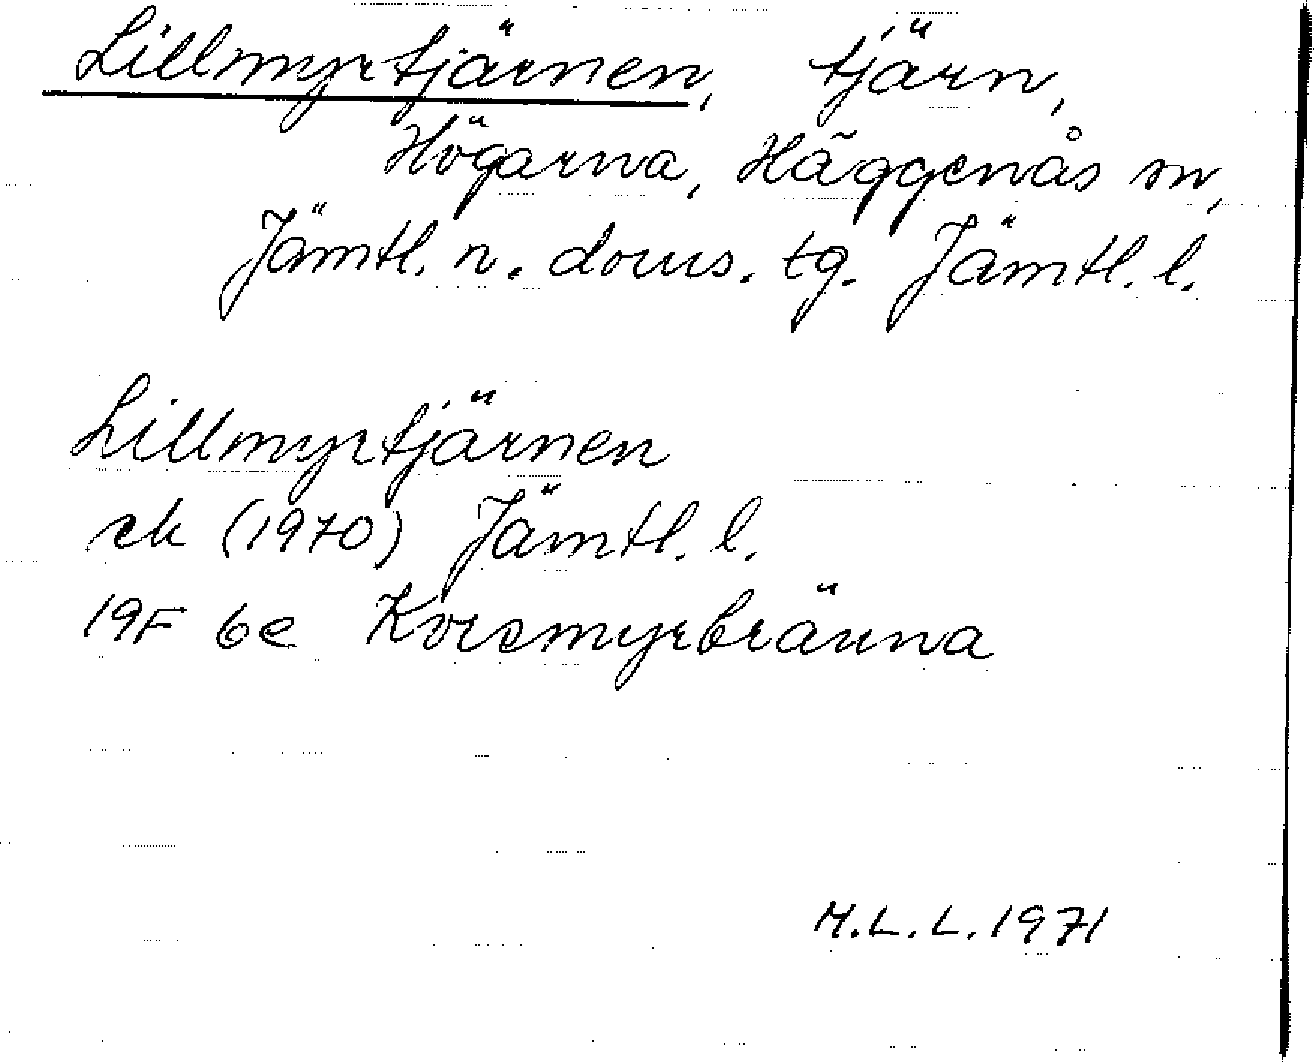 Lillmyrtjärnen, tjärn,
Högarna, Häggenås sn,
Jämtl. n. doms. tg. Jämtl. l.
Lillmyrtjärnen
ek (1970) Jämtl. l.
19F 6e Korsmyrbränna
M.L.L. 1971